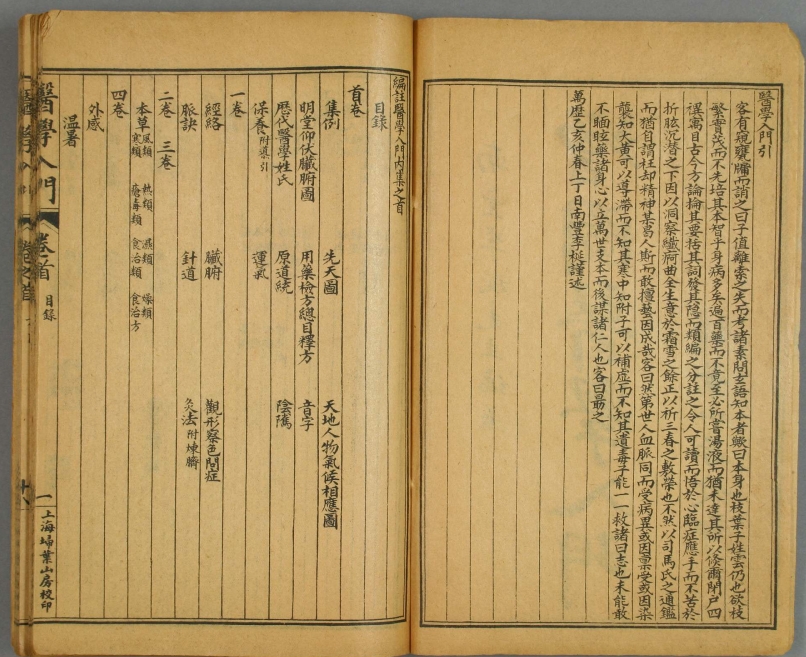 醫學入門引
客有窺甕牖而誚之曰子值離索之失而考諸素問玄語知本者歟曰本身也枝葉子姓雲仍也欲枝
繁實茂而不先培其本智乎身病多矣遍百藥而不竟至必所嘗湯液而猶未達其所以修爾閉戶四
禩寓目古今方論掄其要括其詞發其隱而類編之分註之令人可讀而悟於心臨症應手而不苦於
折肱沉潛之下因以洞察纖疴曲全生意於霜雪之餘正以祈三春之敷榮也不然以司馬氏之通鑑
而猶自謂枉却精神某葛人斯而敢擅藝因成哉客曰然第世人血脈同而受病異或因稟受或因染
襲知大黃可以導滯而不知其寒中知附子可以補虛而不知其遺毒子能一一救諸曰志也未能敢
不瞑眩藥諸身心以立萬世支本而後謀諸仁人也客曰最之
萬歷乙亥仲春上丁日南豐李梴謹述
編註醫學入門內集之首
目錄
首卷
集例 先天圖 天地人物氣候相應圖
明堂仰伏臟腑圖 用藥檢方總目釋方 音字
歷代醫學姓氏 原道統 陰隲
保養附導引 運氣
一卷
經絡 臟腑 觀形察色問症
脈訣 針道 灸法附煉臍
二卷 三卷
本草風類 熱類 濕類 燥類
寒類 瘡毒類 食治類 食治方
四卷
外感
溫暑
醫學入門 卷之首 目錄 一 上海埽葉山房校印